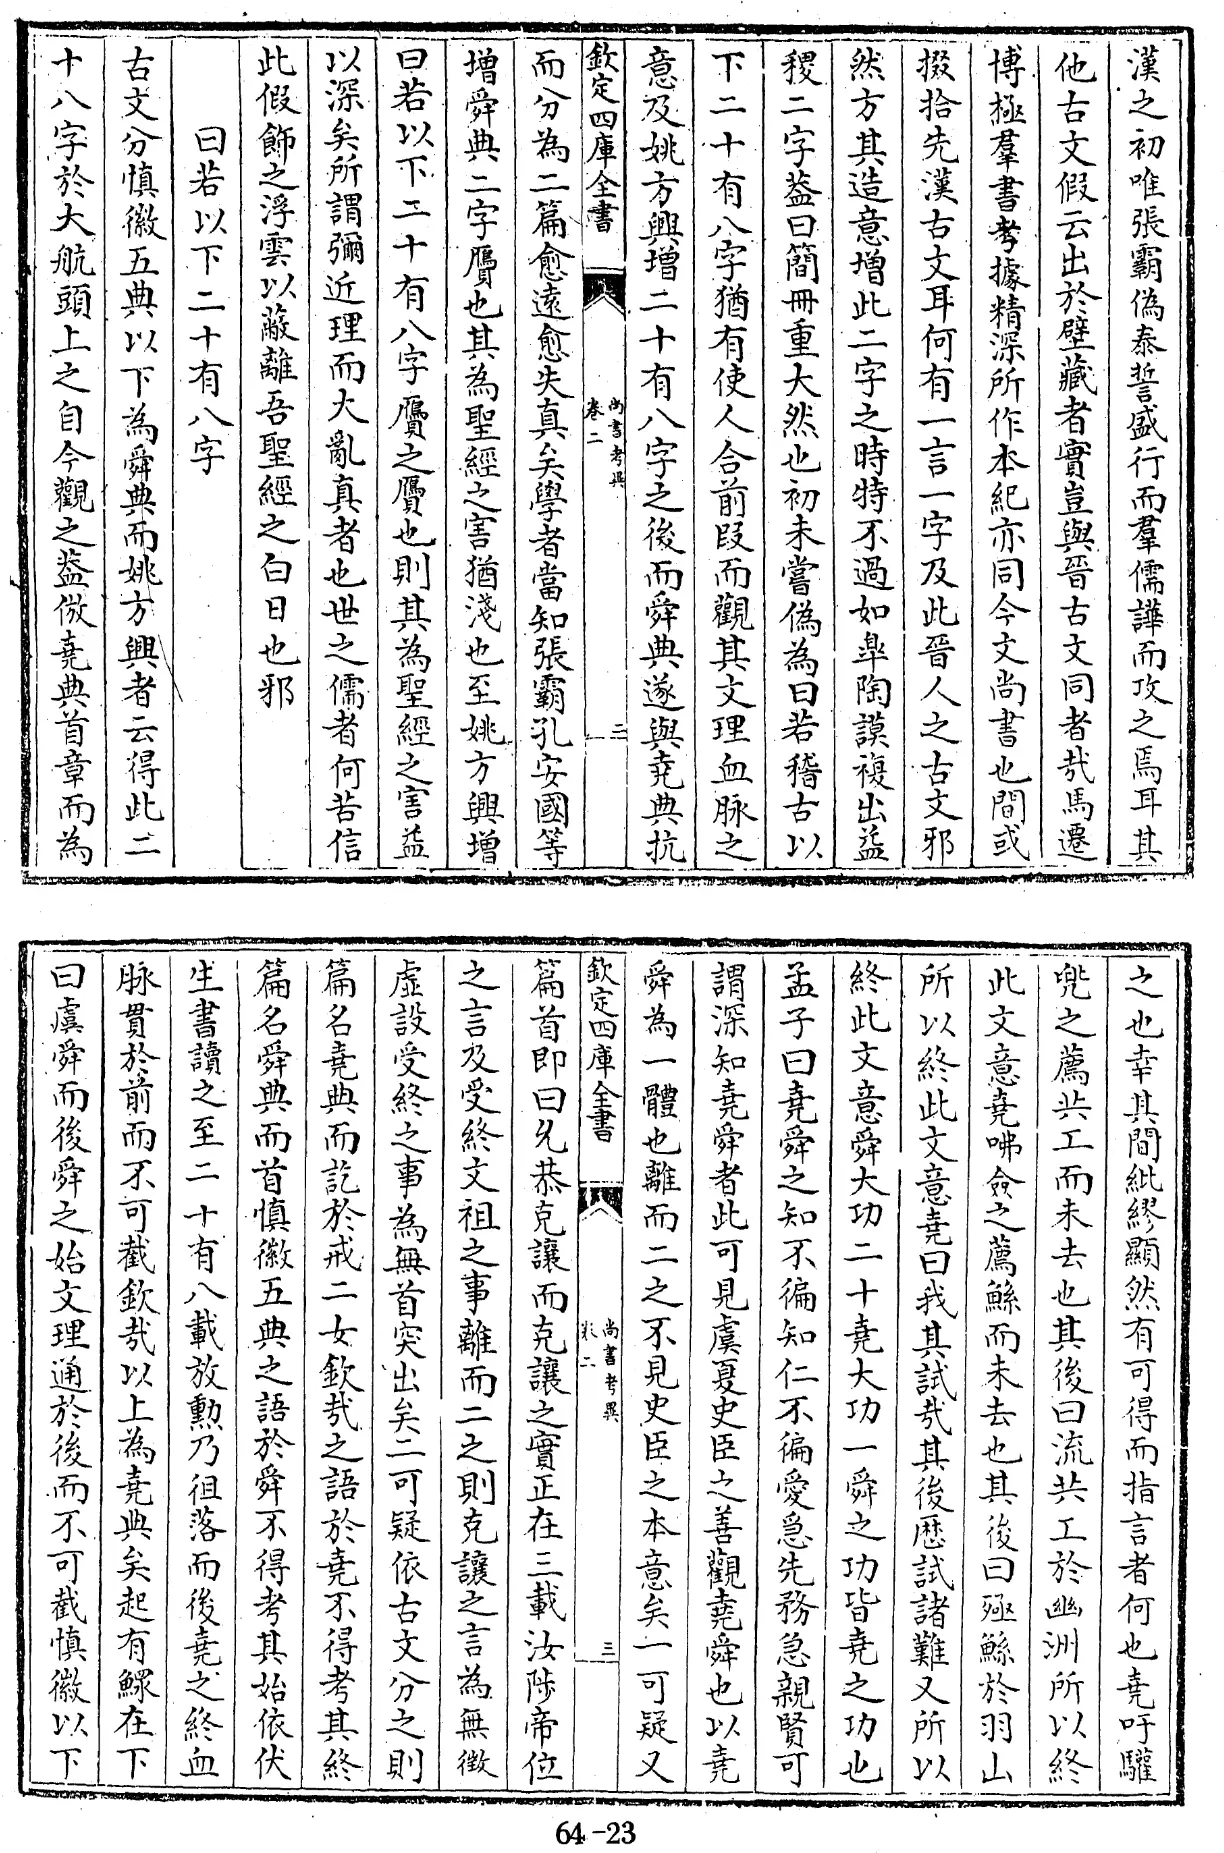 漢之初唯張霸偽泰誓盛行而羣儒譁而攻之焉耳其
他古文假云出於壁藏者實豈與晉古文同者哉馬遷
博極羣書考據精深所作本紀亦同今文尚書也間或
掇拾先漢古文耳何有一言一字及此晉人之古文邪
然方其造意增此二字之時特不過如臯陶謨複出益
稷二字葢曰簡冊重大然也初未嘗偽為曰若稽古以
下二十有八字猶有使人合前段而觀其文理血脉之
意及姚方興增二十有八字之後而舜典遂與堯典抗
欽定四庫全書
尚書考異
卷二
二
而分為二篇愈遠愈失真矣學者當知張霸孔安國等
增舜典二字贋也其為聖經之害猶淺也至姚方興增
曰若以下二十有八字贋之贋也則其為聖經之害益
以深矣所謂彌近理而大亂真者也世之儒者何苦信
此假飾之浮雲以蔽離吾聖經之白日也邪
曰若以下二十有八字
古文分慎徽五典以下為舜典而姚方興者云得此二
十八字於大航頭上之自今觀之葢倣堯典首章而為
之也幸其間紕繆顯然有可得而指言者何也堯吁驩
兜之薦共工而未去也其後曰流共工於幽洲所以終
此文意堯咈僉之薦鯀而未去也其後曰殛鯀於羽山
所以終此文意堯曰我其試哉其後歷試諸難又所以
終此文意舜大功二十堯大功一舜之功皆堯之功也
孟子曰堯舜之知不徧知仁不徧愛急先務急親賢可
謂深知堯舜者此可見虞夏史臣之善觀堯舜也以堯
舜為一體也離而二之不見史臣之本意矣一可疑又
欽定四庫全書
尚書考異
卷二
三
篇首即曰允恭克讓而克讓之實正在三載汝陟帝位
之言及受終文祖之事離而二之則克讓之言為無徵
虛設受終之事為無首突出矣二可疑依古文分之則
篇名堯典而訖於戒二女欽哉之語於堯不得考其終
篇名舜典而首慎徽五典之語於舜不得考其始依伏
生書讀之至二十有八載放勳乃徂落而後堯之終血
脉貫於前而不可截欽哉以上為堯典矣起有鰥在下
曰虞舜而後舜之始文理通於後而不可截慎徽以下
64-23